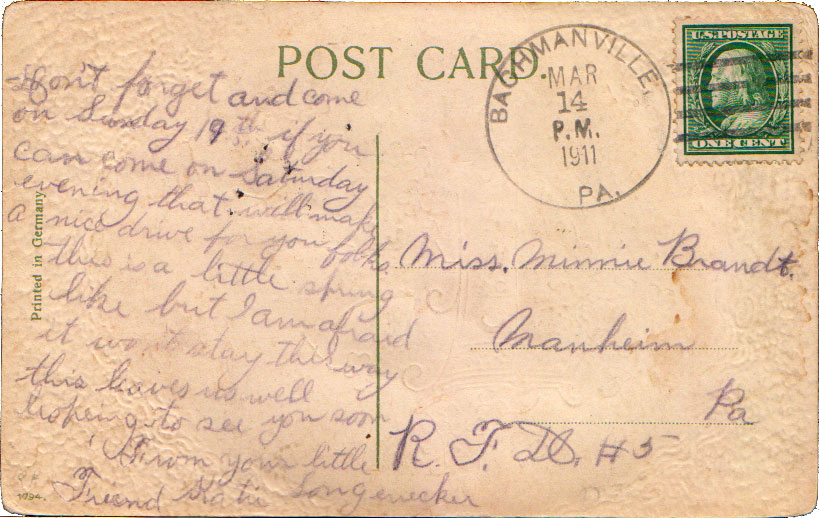 POST CARD.
BACHMANVILLE,
MAR
14
P.M.
1911
PA.
U.S. POSTAGE
ONE CENT
Don't forget and come
on Sunday 19th if you
can come on Saturday
evening that will make
a nice drive for you folks
this is a little spring
like but I am afraid
it wont stay this way
this leaves us well
hopeing to see you soon
From your little
Friend Katie Longenecker
Printed in Germany.
Miss. Minnie Brandt.
Manheim
Pa
R. F. D. #5